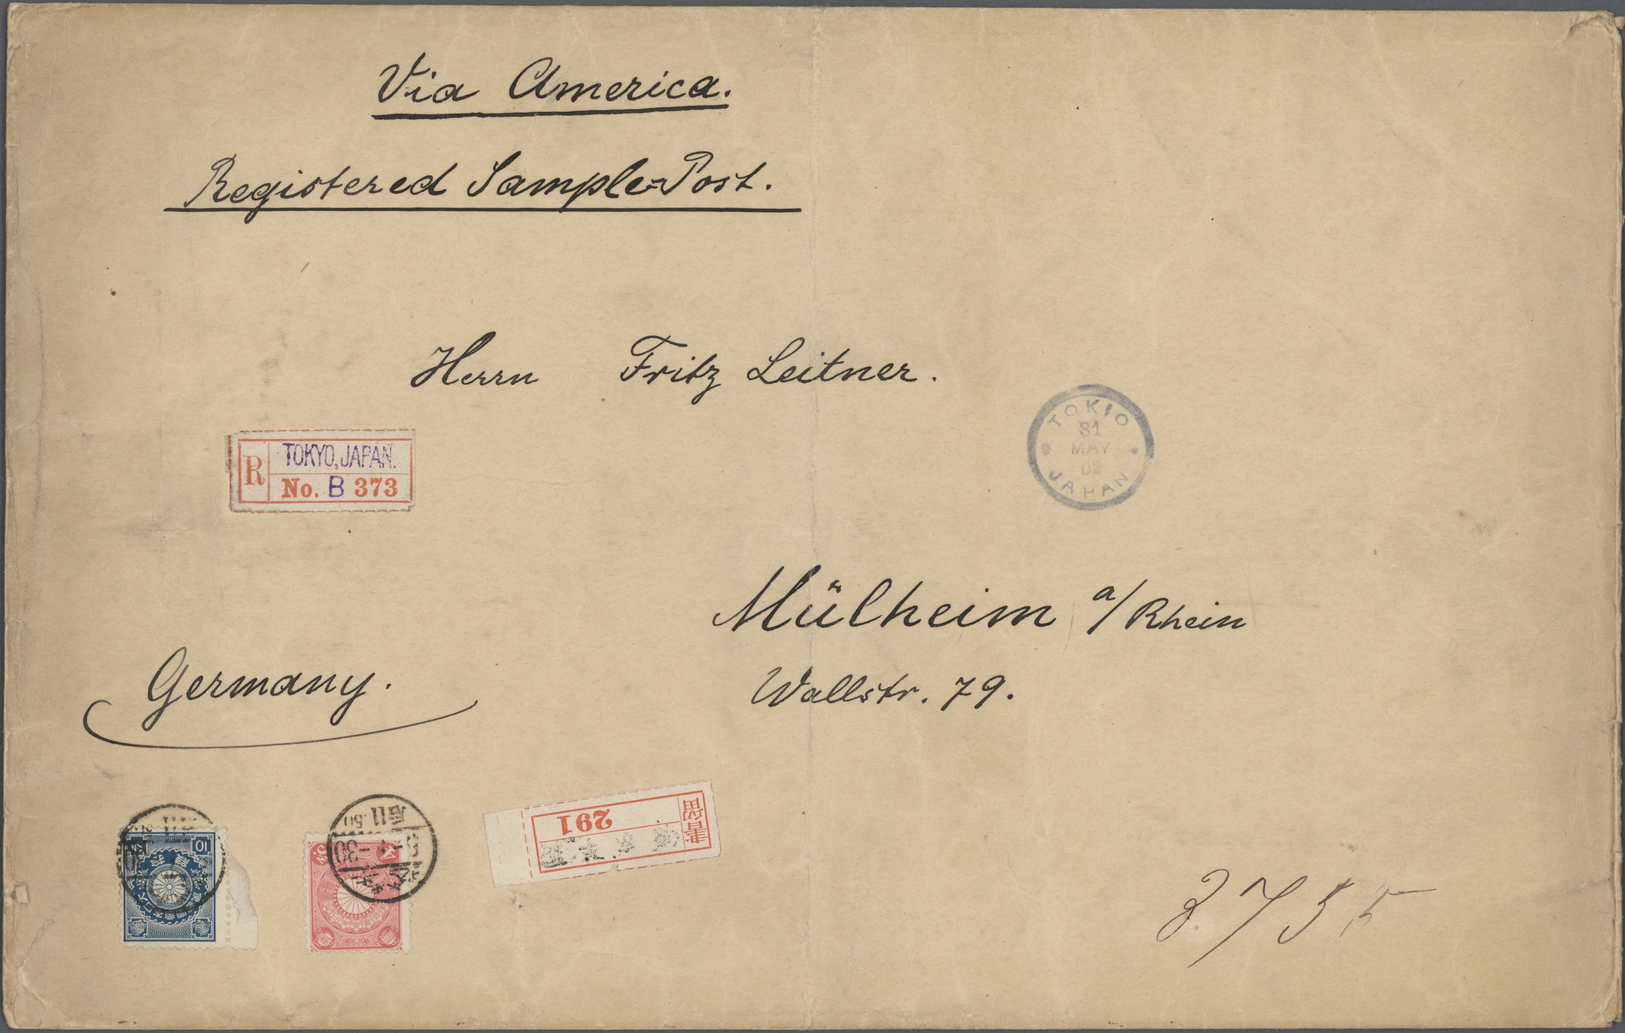 Via America.
Registered Sample=Post.
Herrn Fritz Leitner.
R
TOKYO, JAPAN.
No. B 373
TOKIO
31
MAY
02
JAPAN
Mülheim a/Rhein
Wallstr. 79.
Germany.
10
書留
291